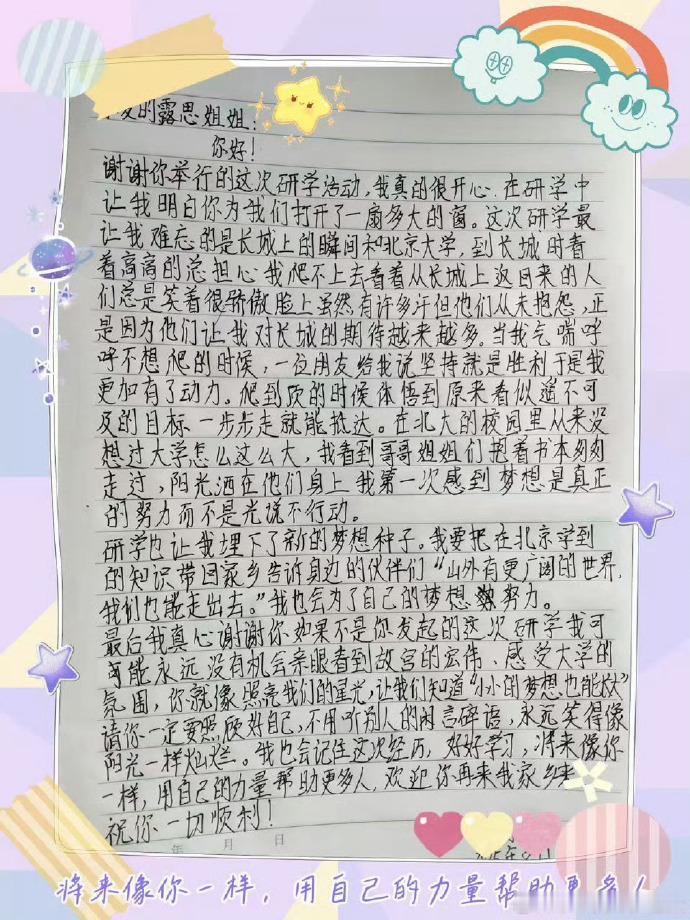 爱的露思姐姐:
你好!
谢谢你举行的这次研学活动,我真的很开心.在研学中
让我明白你为我们打开了一扇多大的窗。这次研学最
让我难忘的是长城上的瞬间和北京大学,到长城时看
着高高的总担心我爬不上去看着从长城上返回来的人
们总是笑着很骄傲脸上虽然有许多汗但他们从未抱怨,正
是因为他们让我对长城的期待越来越多。当我气喘呼
呼不想爬的时候,一位朋友给我说坚持就是胜利于是我
更加有了动力。爬到顶的时候体悟到原来看似遥不可
及的目标一步步走就能抵达。在北大的校园里从来没
想过大学怎么这么大,我看到哥哥姐姐们抱着书本匆匆
走过,阳光洒在他们身上我第一次感到梦想是真正
的努力而不是光说不行动。
研学也让我埋下了新的梦想种子。我要把在北京学到
的知识带回家乡告诉身边的伙伴们“山外有更广阔的世界,
我们也能走出去。”我也会为了自己的梦想努力。
最后我真心谢谢你如果不是你发起的这次研学我可
能永远没有机会亲眼看到故宫的宏伟、感受大学的
氛围,你就像照亮我们的星光,让我们知道“小小的梦想也能伟大”
请你一定要照顾好自己,不用听别人的闲言碎语,永远笑得像
阳光一样灿烂。我也会记住这次经历,好好学习,将来像你
一样,用自己的力量帮助更多人,欢迎你再来我家乡
祝你一切顺利!
年 月 日
将来像你一样,用自己的力量帮助更多人